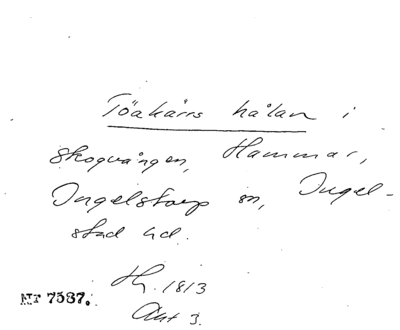 Töakärrs hålan i
skogvången, Hammar,
Ingelstorp sn, Ingel-
stad hd.
Th. 1813
Akt 3.
NT 7587.